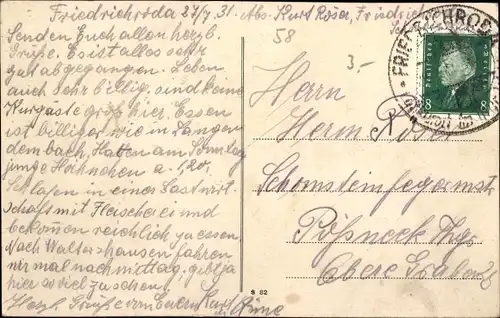 Friedrichroda 27/7. 31. Abs. Kurt Rösen, Friedrich
Senden Euch allen herzl.
Grüße. Es ist alles sehr
gut abgegangen. Leben
auch sehr billig, sind keine
Kurgäste groß hier. Essen
ist billiger wie in Langen
dembach, Hatten am Sonntag
junge Hähnchen a. 1,20,
Schlafen in einer Gastwirt
schaft mit Fleischerei und
bekommen reichlich zu essen.
Nach Waltershausen fahren
wir mal nachmittag, gibt ja
hier so viel zu sehen.
Herzl. Grüße von Euern Kurt
u. Anne
58
3.-
Herrn
Herm.
Schornsteinfegermst.
Pößneck Thür.
Obere Graben
FRIEDRICHRODA
Deutsches Reich
8 8
S 82